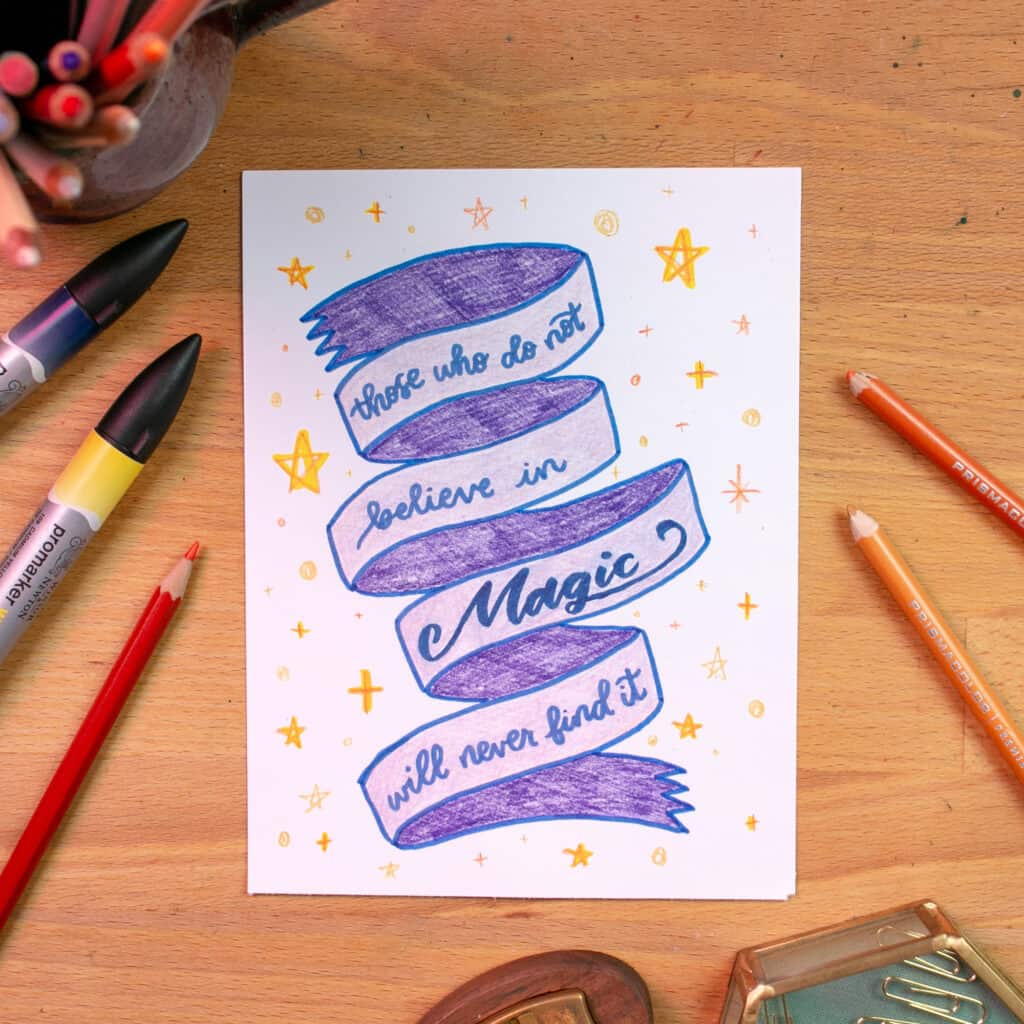 those who do not
believe in
Magic
will never find it
promarker
WINSOR
& NEWTON
PRISMACOLOR
PRISMACOLOR